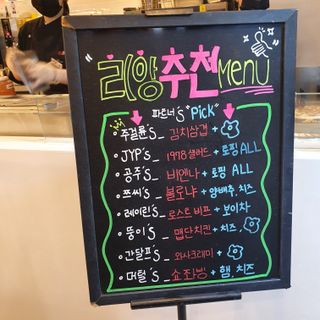 "리양추천Menu"
파트너's "Pick"
주걸륜's _ 김치삼겹 +
JYP's _ 1978샐러드 + 토핑ALL
공주's _ 비엔나 + 토핑 ALL
쯔씨's _ 볼로냐 + 양배추, 치즈
레이린's _ 로스트비프 + 보이차
뚱이's _ 맵단치킨 + 치즈,
간달프's _ 와사크래미 +
머털's _ 쇼좌빙 + 햄 치즈